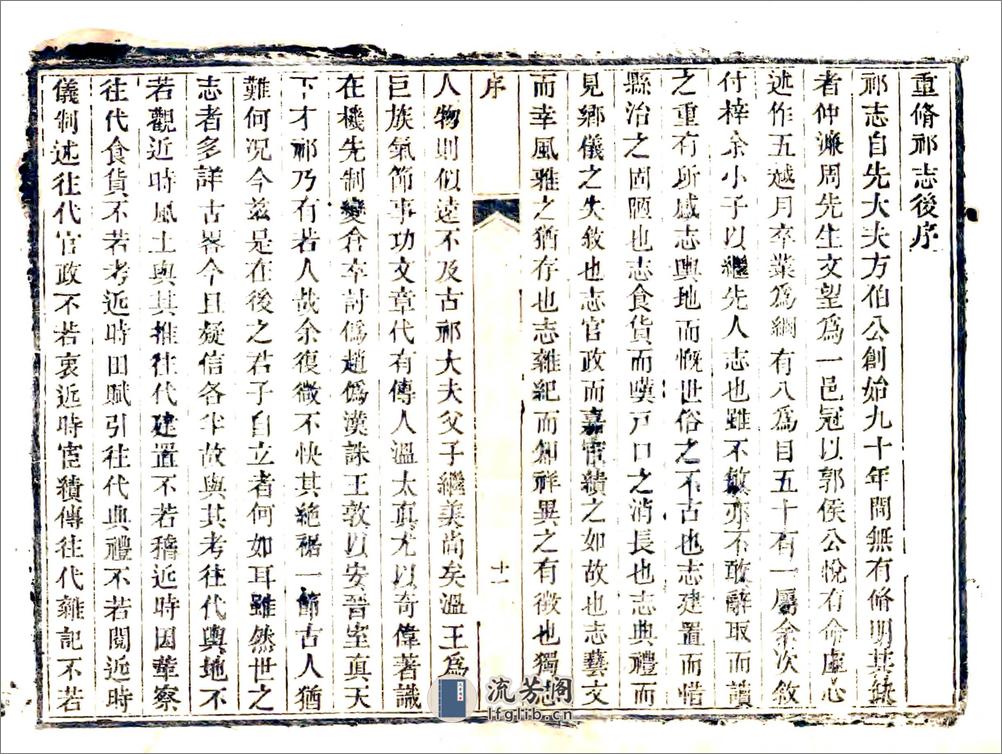 重脩祁志後序
祁志自先大夫方伯公創始九十年間無有脩明其缺
者仲濂周先生文望為一邑冠以郭侯公悅有命虛心
述作五越月卒業為綱有八為目五十有一屬余次敘
付梓余小子以繼先人志也雖不敏亦不敢辭取而讀
之重有所感志輿地而慨世俗之不古也志建置而惜
縣治之固陋也志食貨而嘆戶口之消長也志典禮而
見鄉儀之失敘也志官政而嘉宦績之如故也志藝文
而幸風雅之猶存也志雜紀而知祥異之有徵也獨志
序
十一
人物則似遠不及古祁大夫父子繼美尚矣溫王為
巨族氣節事功文章代有傳人溫太真尤以奇偉著識
在機先制變倉卒討偽趙偽漢誅王敦以安晉室真天
下才祁乃有若人哉余復微不快其絶裾一節古人猶
難何況今茲是在後之君子自立者何如耳雖然世之
志者多詳古畧今且疑信各半故與其考往代輿地不
若觀近時風土與其推往代建置不若稽近時因革察
往代食貨不若考近時田賦引往代典禮不若閱近時
儀制述往代官政不若衷近時宦績傳往代雜記不若
流芳閣
lfglib.cn